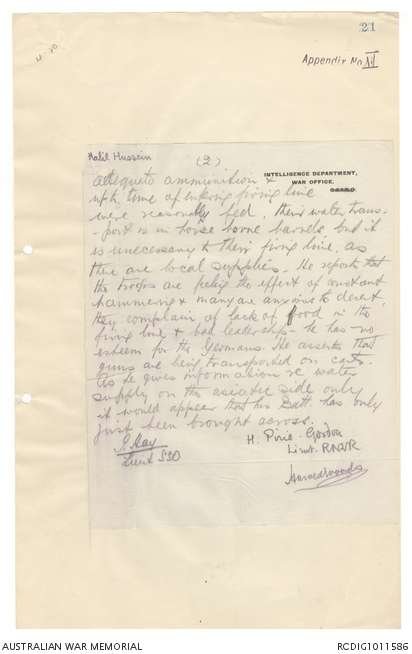 21
Appendix No VI
Halil Hussein
(2)
INTELLIGENCE DEPARTMENT,
WAR OFFICE.
adequate ammunition &
upto time of entering firing line
were reasonably fed, their water trans-
port is in horse borne barrels but it
is unnecessary to their firing line, as
there are local supplies. He reports that
the troops are feeling the effect of constant
hammering & many are anxious to desert,
they complain of lack of food in the
firing line & bad leadership - he has no
esteem for the Germans. He asserts that
guns are being transported on carts.
As he gives information re water
supply on the asiatic side only
it would appear that his Batt. has only
just been brought across.
Lieut
H. Pirie-Gordon
Lieut. RNVR
AUSTRALIAN WAR MEMORIAL
RCDIG1011586